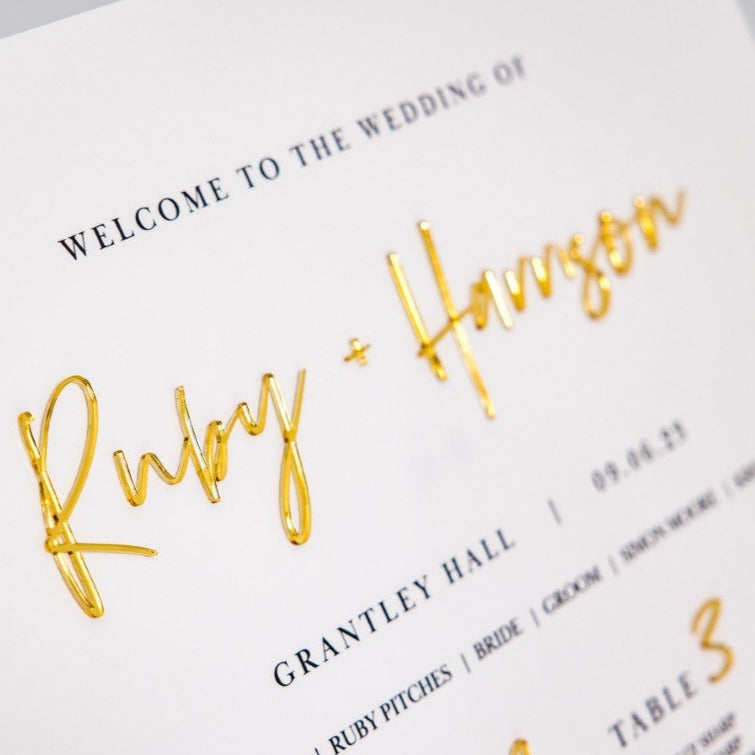 WELCOME TO THE WEDDING OF
Ruby + Hamson
GRANTLEY HALL | 09.06.25
| RUBY PITCHES | BRIDE | GROOM | SIMON MOORE |
TABLE 3